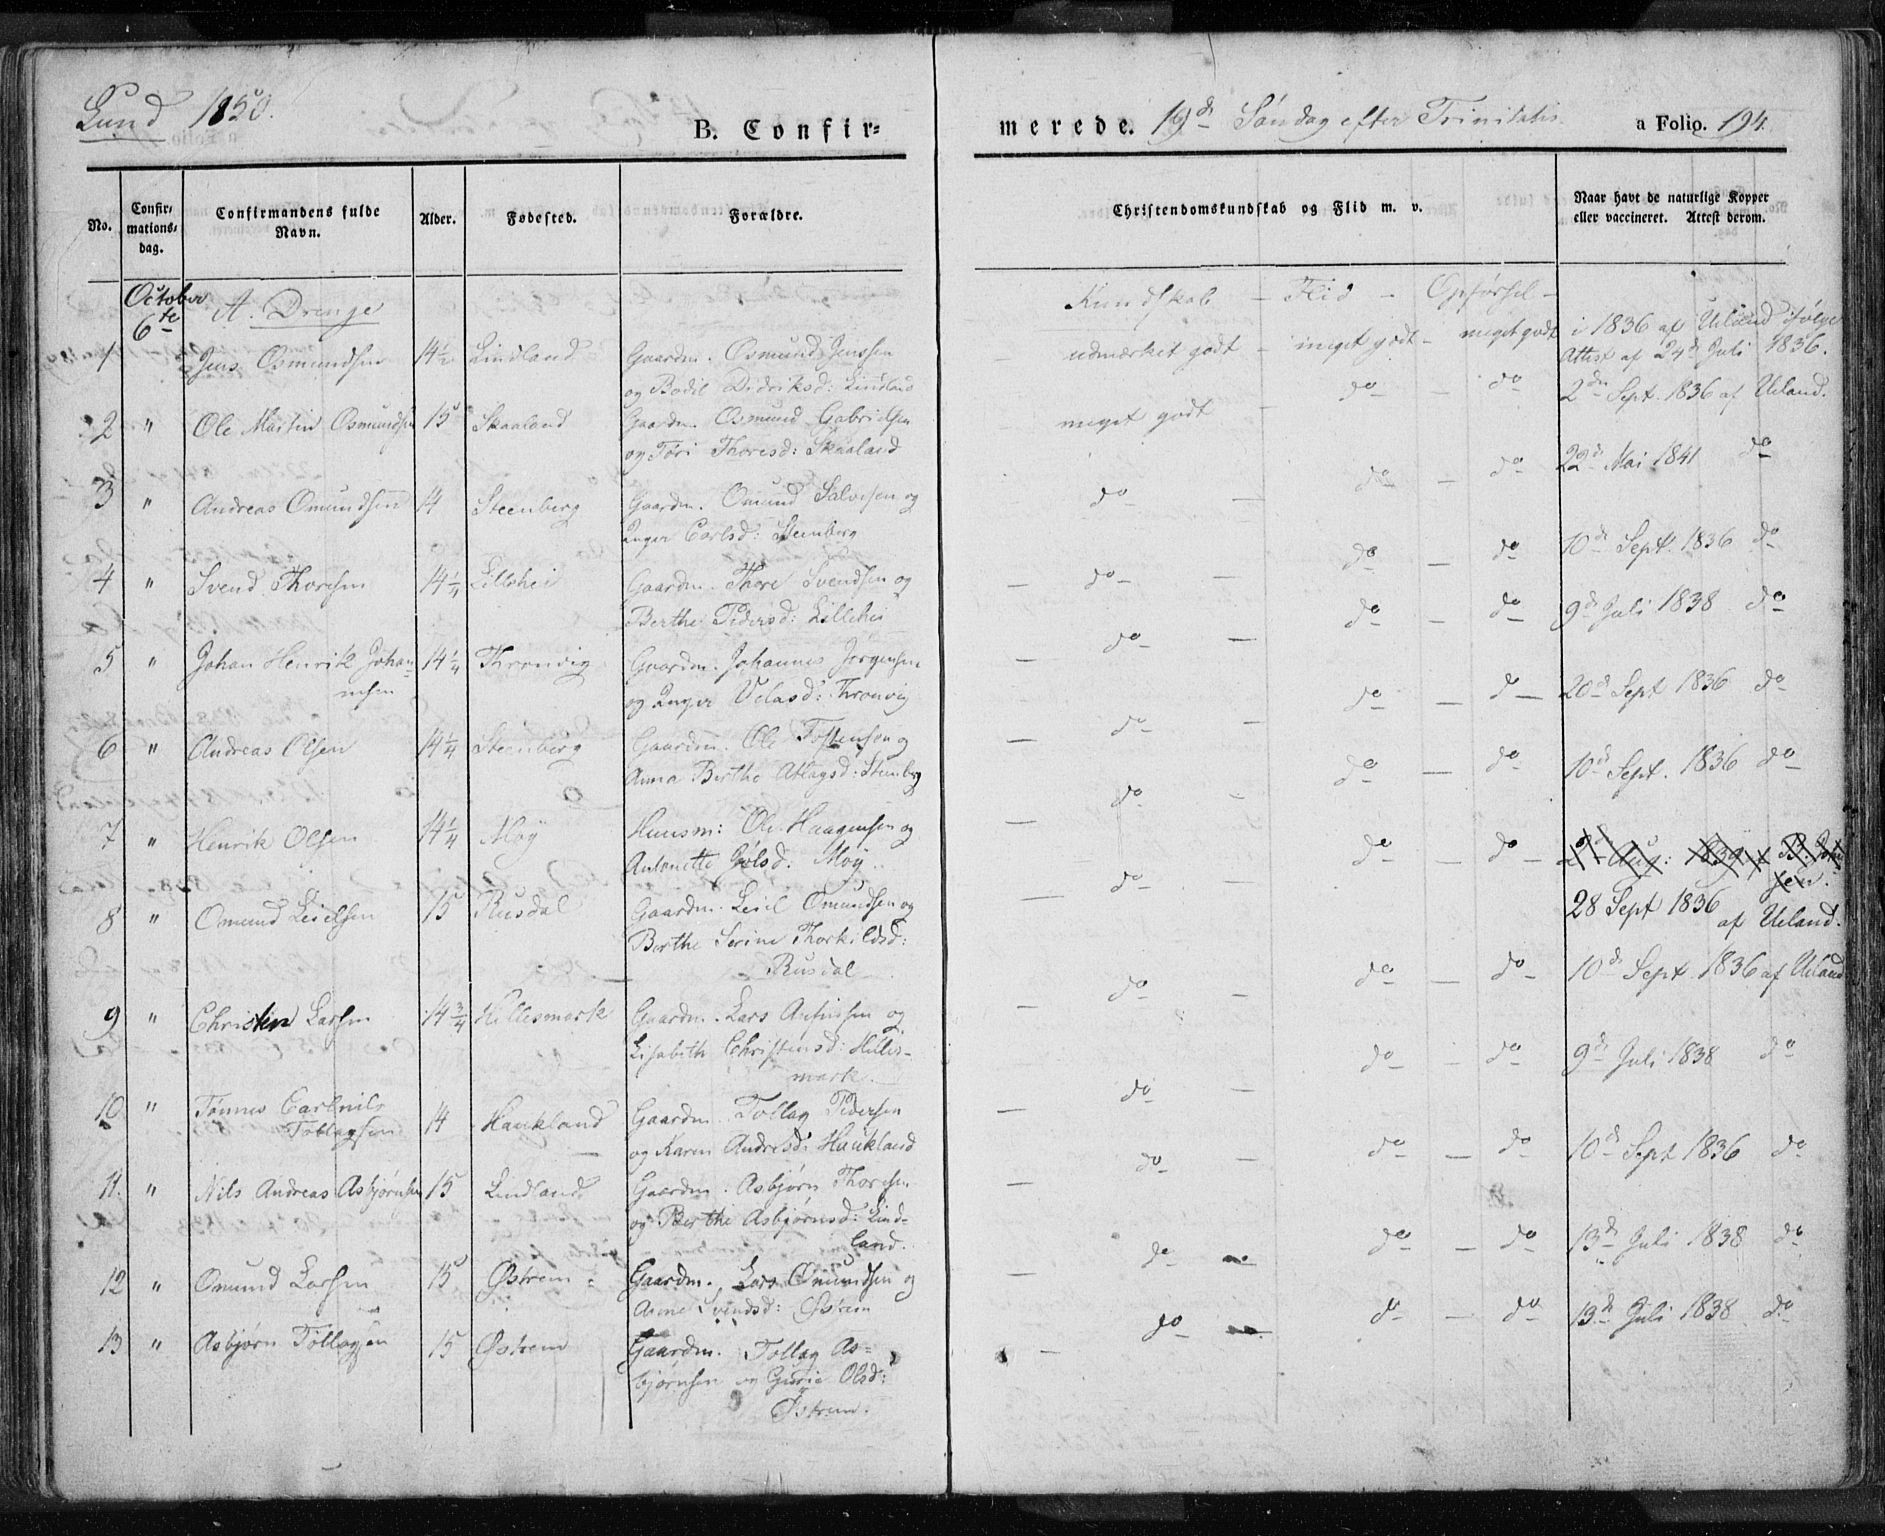 Lund 1850.
B. Confirmerede. 19de Søndag efter Trinitatis. a Folio. 194.
No. Confirmationsdag. Confirmandens fulde Navn. Alder. Fødested. Forældre. Christendomskundskab og Flid m. v. Naar havt de naturlige Kopper eller vaccineret. Attest derom.
October 6te A. Drenge Kundskab - Flid - Opførsel -
1 Jens Osmundsen 14 1/2 Lindland Gaardm. Osmund Jenssen
og Bodil Didriksd: Lindland
udmærket godt - meget godt - meget godt
i 1836 af Ueland ifølge
Attest af 24d Juli 1836.
2 " Ole Martin Osmundsen 15 Skaaland Gaardm. Osmund Gabrielsen
og Tori Thoresd: Skaaland
meget godt - do - do 2den Sept. 1836 af Ueland.
3 " Andreas Omundsen 14 Steenberg Gaardm. Omund Salvesen og
Inger Carlsd: Steenberg
- do - do - do 22d Mai 1841 do
4 " Svend Thoresen 14 1/4 Lillehei Gaardm. Thore Svendsen og
Berthe Pedersd: Lillehei
- do - do - do 10d Sept. 1836 do
5 " Johan Henrik Johannesen 14 1/4 Thronvig Gaardm. Johannes Jørgensen
og Inger Velasd: Thronvig
- do - do - do 9d Juli 1838 do
6 " Andreas Olsen 14 1/4 Steenberg Gaardm. Ole Tostensen og
Anna Berthe Atlagsd: Steenberg
- do - do - do 20d Sept 1836 do
7 " Henrik Olsen 14 1/4 Moy Huusm: Ole Haagensen og
Antonette Joelsd: Moy.
- do - do - do 10d Sept. 1836 do
8 " Omund Leielsen 15 Rusdal Gaardm. Leiel Omundsen og
Berthe Serine Thorkildsd:
Rusdal
- do - do - do
28 Sept 1836
af Ueland.
9 " Christen Larsen 14 3/4 Hillesmark Gaardm. Lars Anfinsen og
Lisabeth Christensd: Hilles-
mark.
- do - do - do 10d Sept. 1836 af Ueland
10 " Tønnes Carlnils
Tollagsen 14 Haukland Gaardm. Tollag Pedersen
og Karen Andresd: Haukland
- do - do - do 9d Juli 1838 do
11. " Nils Andreas Asbjørnsen 15 Lindland Gaardm. Asbjørn Thoresen
og Berthe Asbjørnsd: Lind-
land.
- do - do - do 10d Sept 1836 do
12 " Omund Larsen 15 Østrem Gaardm. Lars Omundsen og
Anne Svendsd: Østrem
- do - do - do 13d Juli 1838 do
13 " Asbjørn Tollagsen 15 Østrem Gaardm. Tollag As-
bjørnsen og Gurie Olsd:
Østrem.
- do - do - do 13d Juli 1838 do